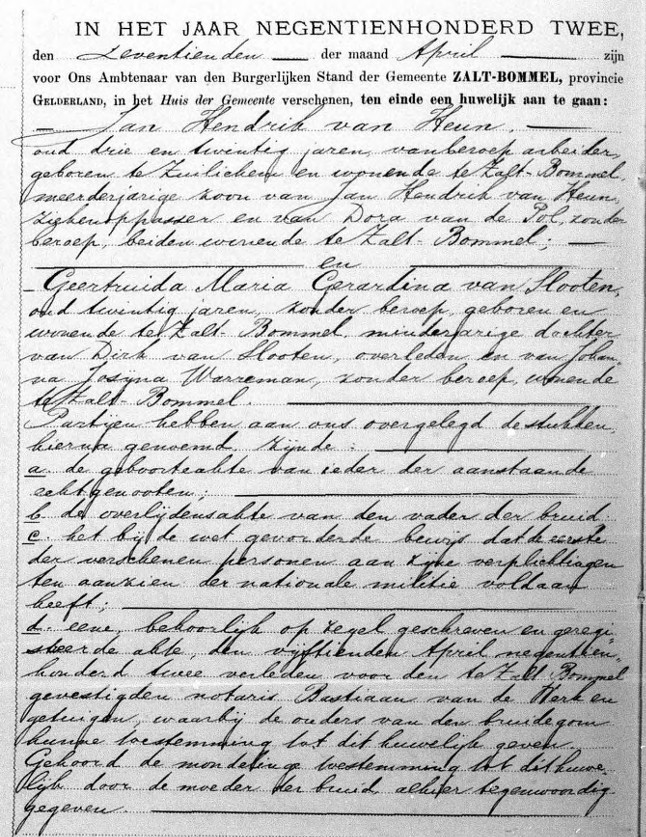 IN HET JAAR NEGENTIENHONDERD TWEE,
den zeventienden der maand April zijn
voor Ons Ambtenaar van den Burgerlijken Stand der Gemeente ZALT-BOMMEL, provincie
GELDERLAND, in het Huis der Gemeente verschenen, ten einde een huwelijk aan te gaan:
Jan Hendrik van Heun,
oud drie en twintig jaren, van beroep arbeider,
geboren te Zuilichem en wonende te Zalt-Bommel,
meerderjarige zoon van Jan Hendrik van Heun,
ziekenoppasser en van Dora van de Pol, zonder
beroep, beiden wonende te Zalt-Bommel;
en
Geertruida Maria Gerardina van Slooten,
oud twintig jaren, zonder beroep, geboren en
wonende te Zalt-Bommel, minderjarige dochter
van Dirk van Slooten, overleden en van Johan-
na Josijna Warreman, zonder beroep, wonende
te Zalt-Bommel.
Partijen hebben aan ons overgelegd de stukken,
hierna genoemd, zijnde:
a. de geboorteakte van ieder der aanstaande
echtgenooten;
b. de overlijdensakte van den vader der bruid
c. het bij de wet gevorderde bewijs dat de eerste
der verschenen personen aan zijne verplichtingen
ten aanzien der nationale militie voldaan
heeft;
d. eene, behoorlijk op zegel geschreven en geregi-
streerde akte, den vijftienden April negentien-
honderd twee verleden voor den te Zalt-Bommel
gevestigden notaris Bastiaan van de Werk en
getuigen, waarbij de ouders van den bruidegom
hunne toestemming tot dit huwelijk geven.
Gehoord de mondelinge toestemming tot dit huwe-
lijk door de moeder der bruid alhier tegenwoordig
gegeven